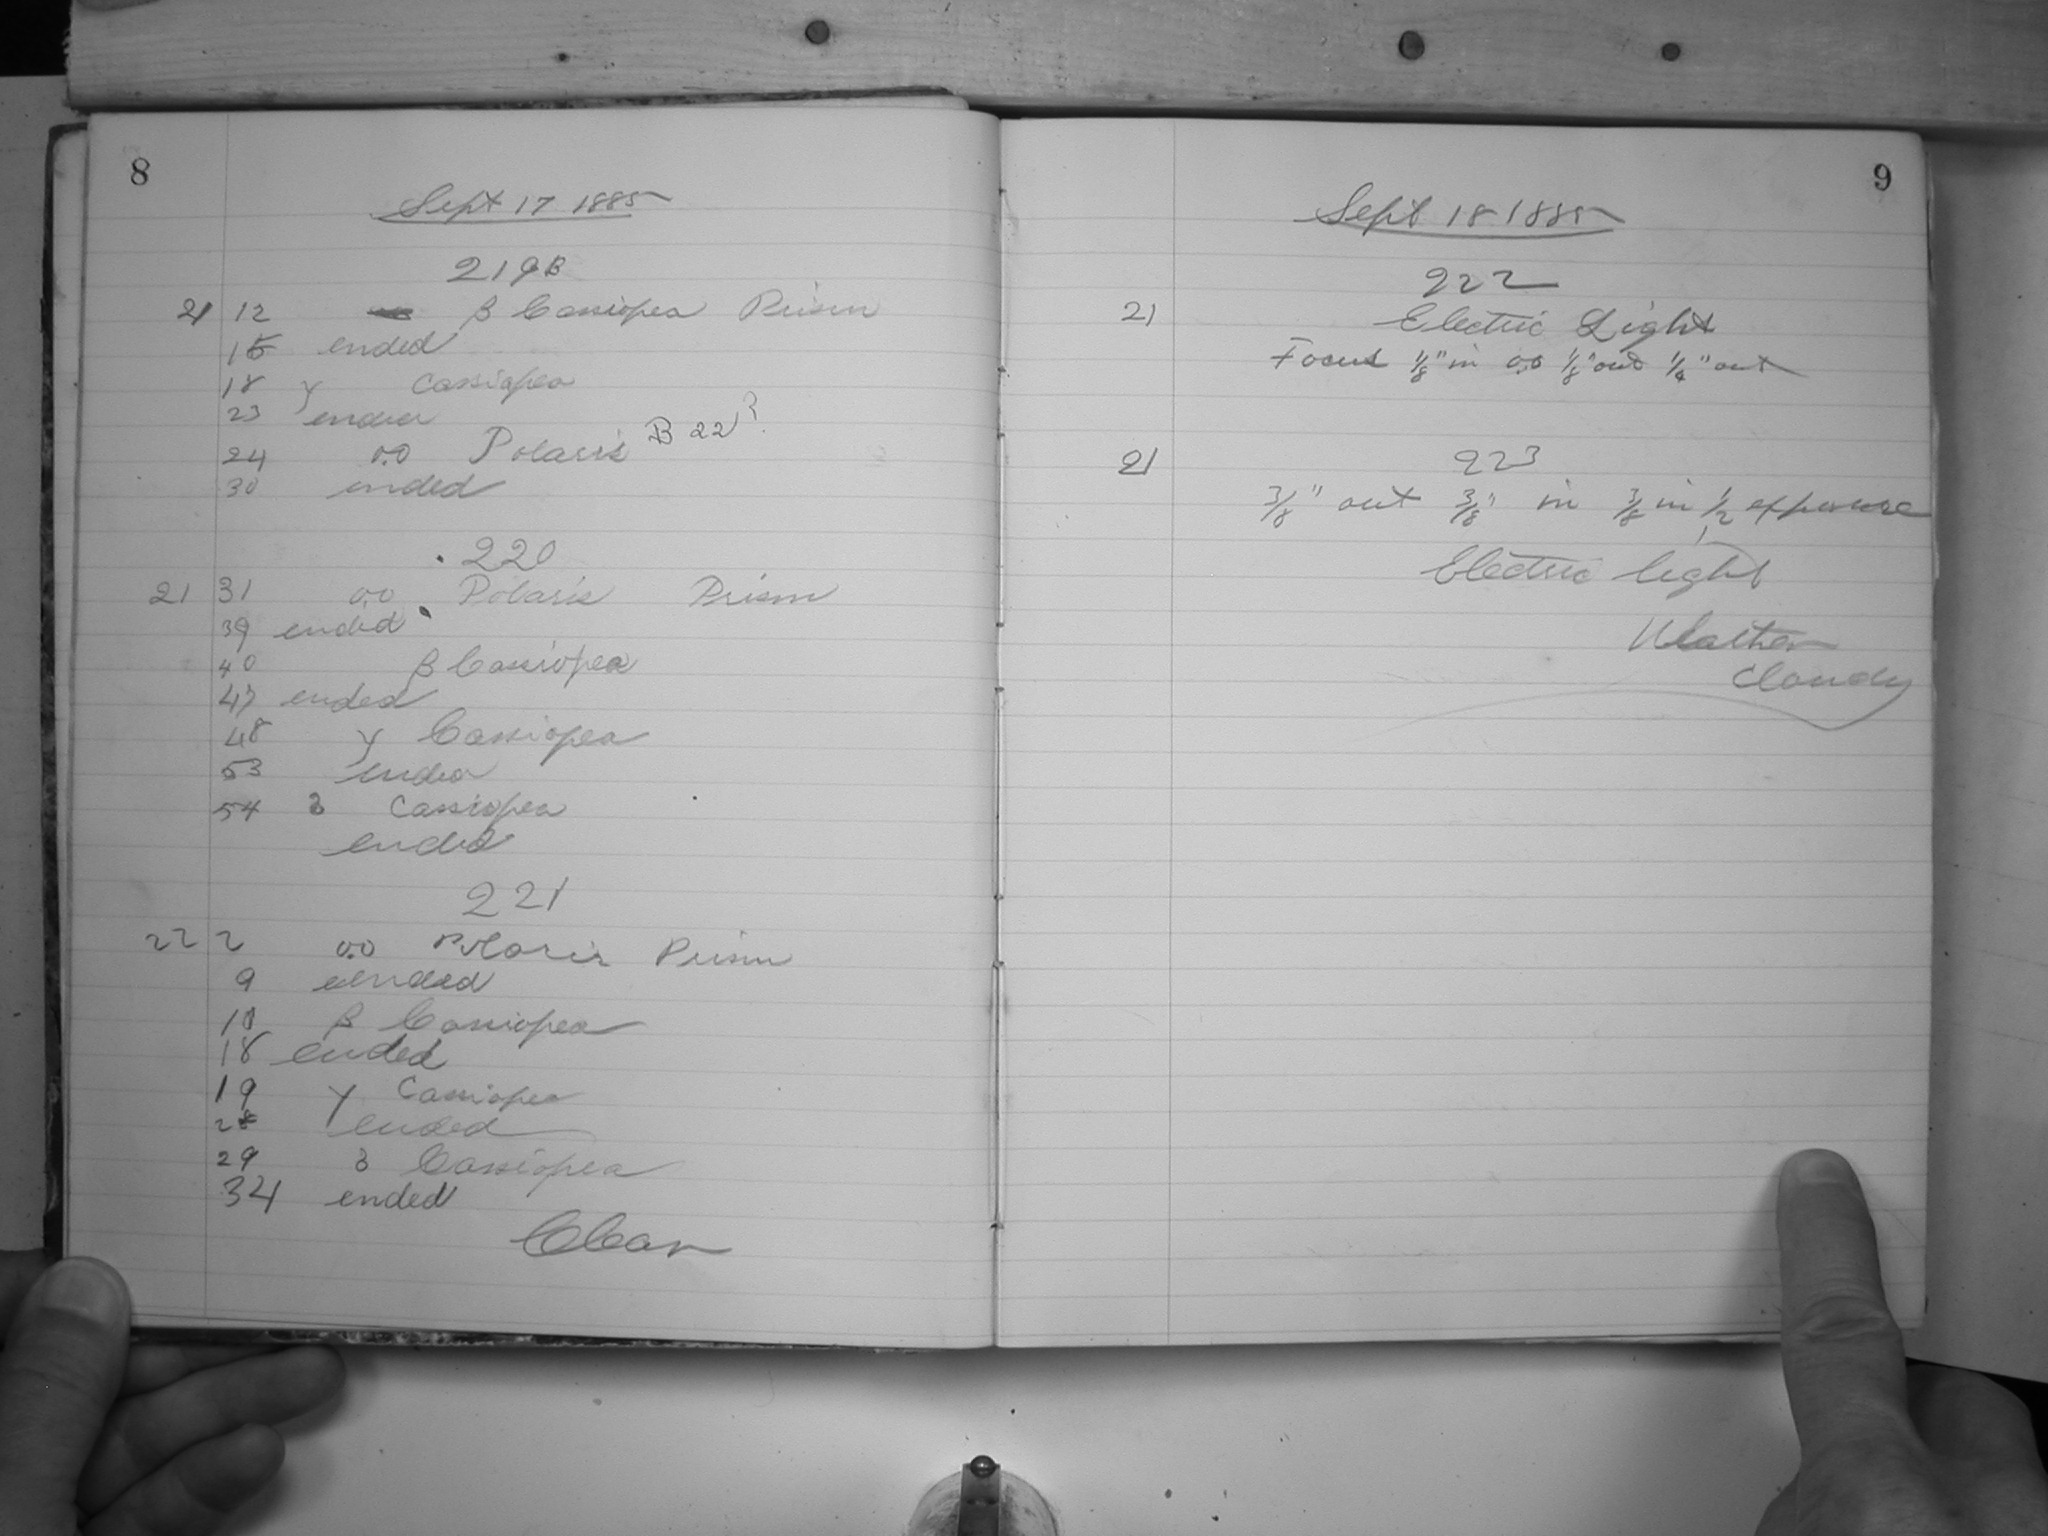 8
Sept 17 1885
219B
21 12 β Cassiopea Prism
15 ended
18 γ Cassiopea
23 ended
24 0.0 Polaris B 22?
30 ended
220
21 31 0.0 Polaris Prism
39 ended
40 β Cassiopea
47 ended
48 γ Cassiopea
53 ended
54 δ Cassiopea
ended
221
22 2 0.0 Polaris Prism
9 ended
10 β Cassiopea
18 ended
19 γ Cassiopea
28 ended
29 δ Cassiopea
34 ended
Clear
9
Sept 18 1885
222
21 Electric Light
Focus 1/8" in 0.0 1/8" out 1/4" out
21 223
3/8" out 3/8" in 3/8 in 1/2 exposure
Electric light
Weather
Cloudy